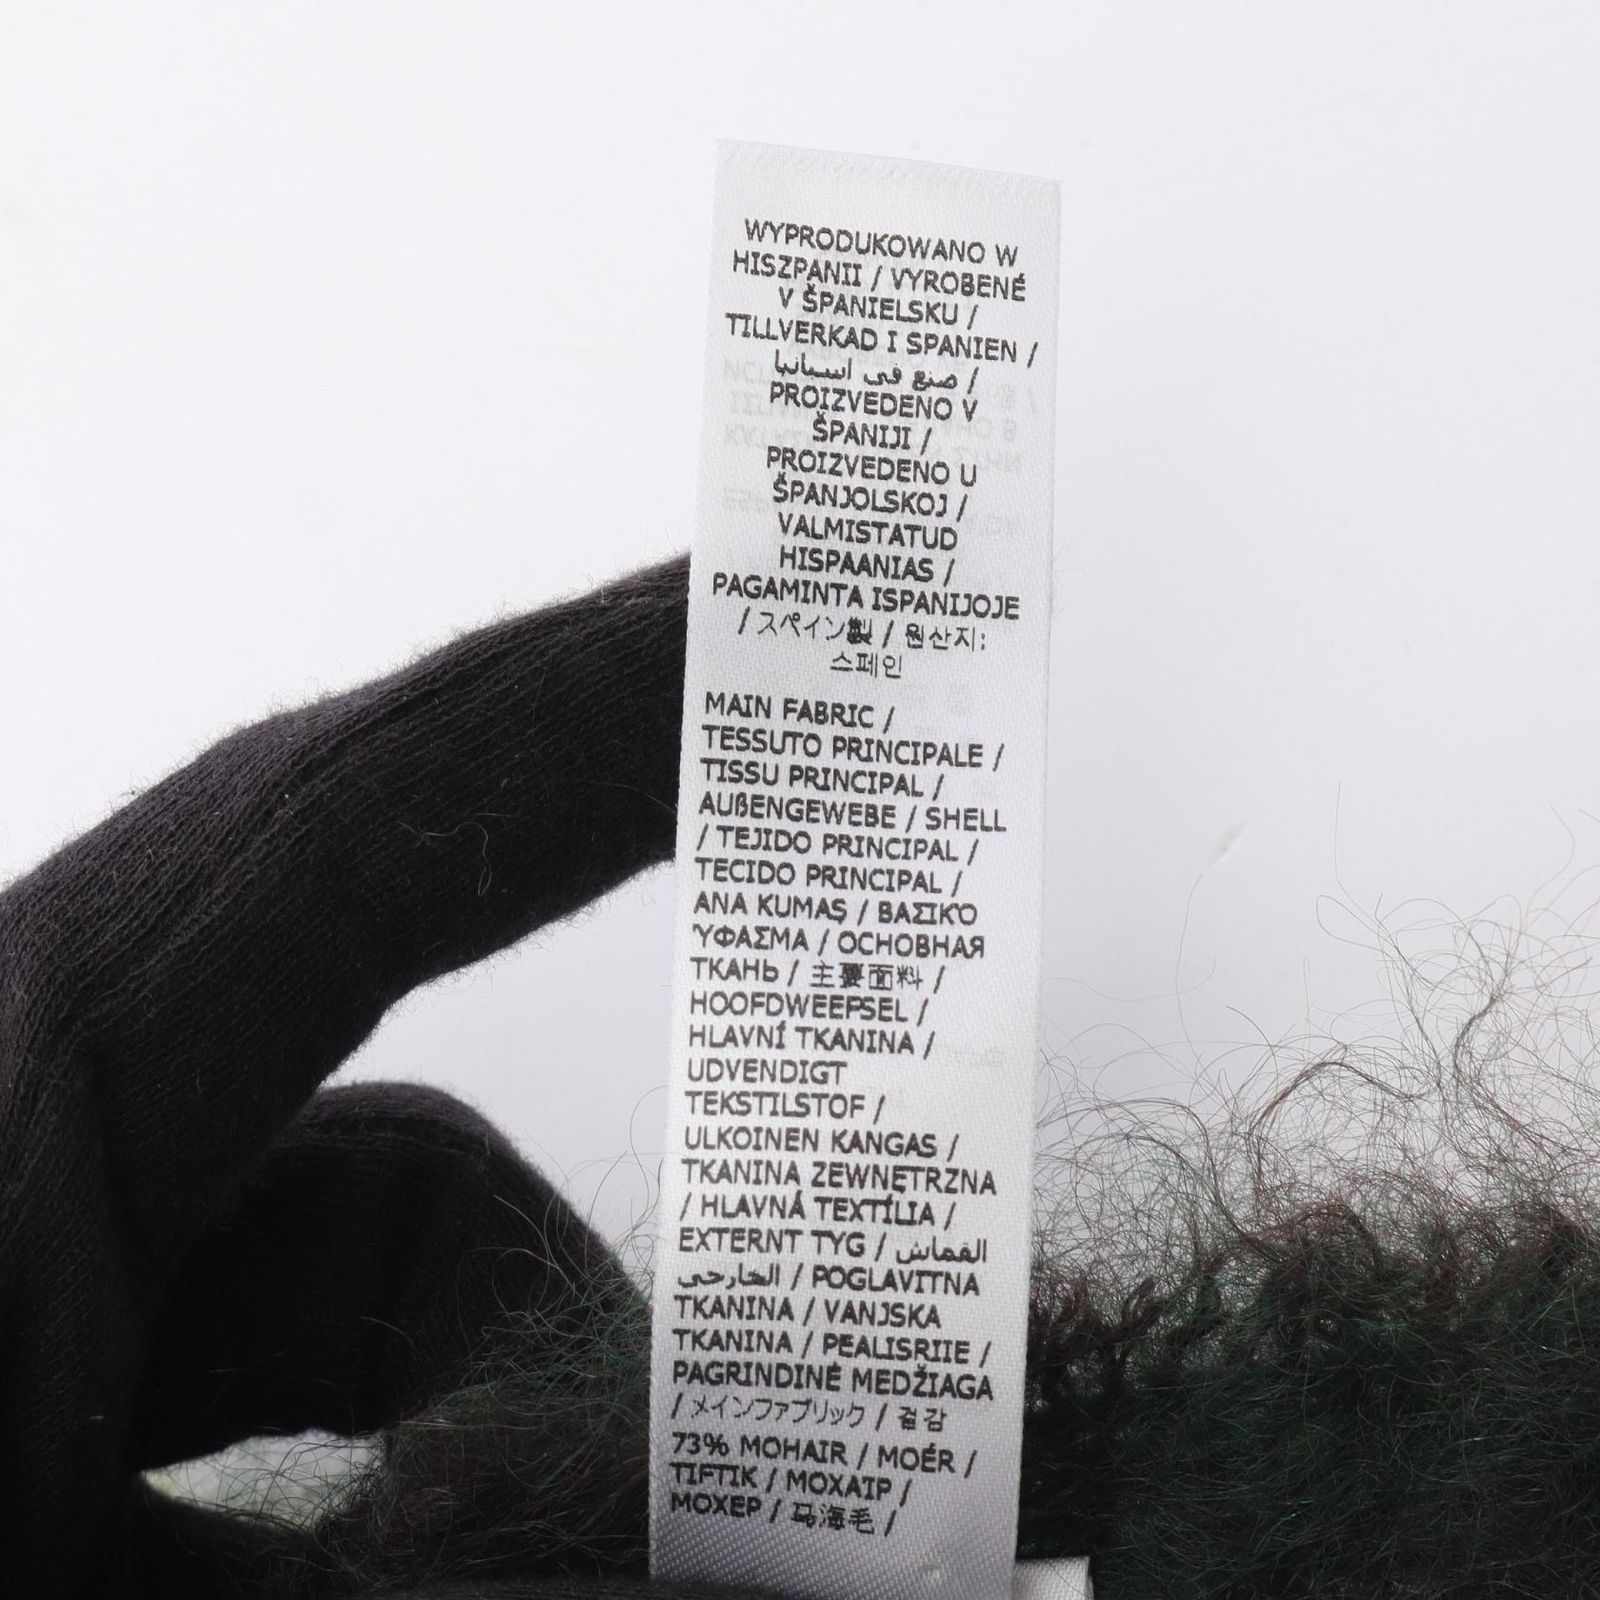 WYPRODUKOWANO W
HISZPANII / VYROBENÉ
V ŠPANIELSKU /
TILLVERKAD I SPANIEN /
صنع في اسبانيا /
PROIZVEDENO V
ŠPANIJI /
PROIZVEDENO U
ŠPANJOLSKOJ /
VALMISTATUD
HISPAANIAS /
PAGAMINTA ISPANIJOJE
/ スペイン製 / 원산지:
스페인
MAIN FABRIC /
TESSUTO PRINCIPALE /
TISSU PRINCIPAL /
AUßENGEWEBE / SHELL
/ TEJIDO PRINCIPAL /
TECIDO PRINCIPAL /
ANA KUMAŞ / ΒΑΣΙΚΌ
ΎΦΑΣΜΑ / ОСНОВНАЯ
ТКАНЬ / 主要面料 /
HOOFDWEEFSEL /
HLAVNÍ TKANINA /
UDVENDIGT
TEKSTILSTOF /
ULKOINEN KANGAS /
TKANINA ZEWNĘTRZNA
/ HLAVNÁ TEXTÍLIA /
EXTERNT TYG / القماش
الخارجي / POGLAVITNA
TKANINA / VANJSKA
TKANINA / PEALISRIIE /
PAGRINDINĖ MEDŽIAGA
/ メインファブリック / 겉감
73% MOHAIR / MOÉR /
TIFTIK / ΜΟΧΑΙΡ /
МОХЕР / 马海毛 /